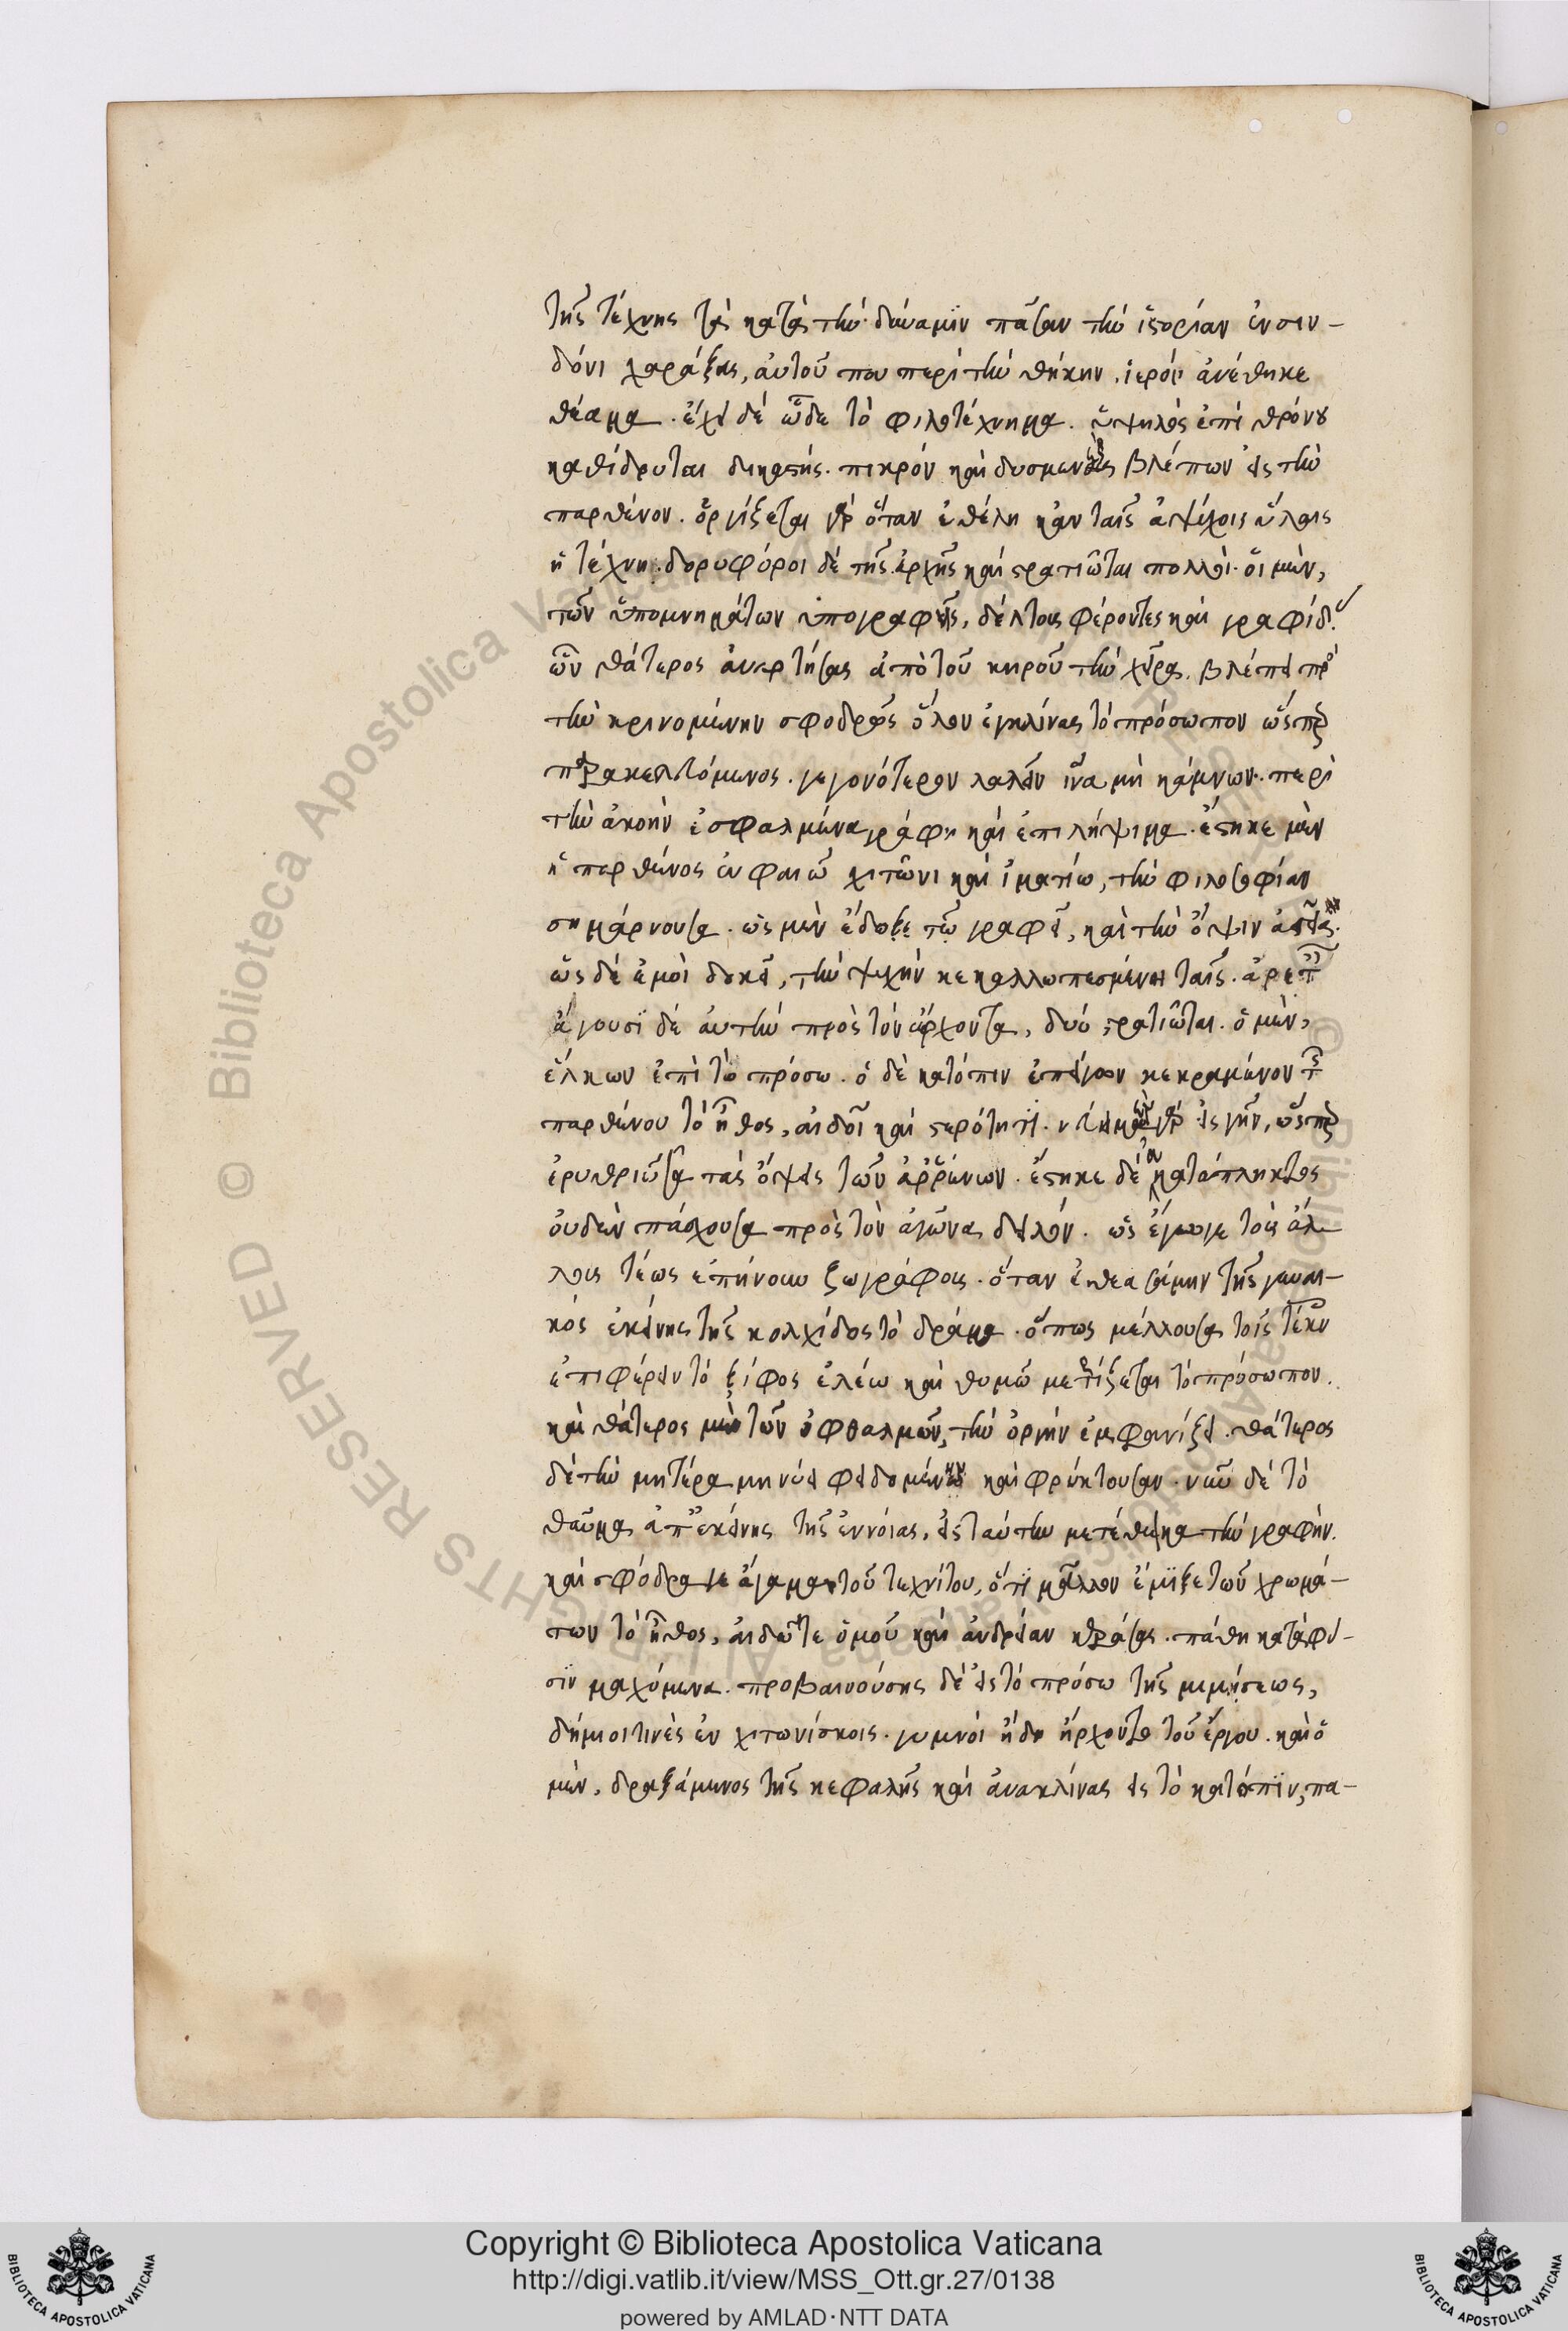 τῆς τέχνης τὰ κατὰ τὴν δύναμϊν πᾶσαν τὴν ἱστορίαν ἐν σιν-
δόνι χαράξας, αὐτοῦ που περὶ τὴν θήκην, ἱερὸν ἀνέθηκε
θέαμα. ἔχει δὲ ὧδε τὸ φιλοτέχνημα. ὑψηλὸς ἐπὶ θρόνου
καθίδρυται δικαστής. πικρὸν καὶ δυσμενὲς βλέπων εἰς τὴν
παρθένον. ὀργίζεται γὰρ ὅταν ἐθέλη κἀν ταῖς ἀψύχοις ὕλαις
ἡ τέχνη. δορυφόροι δὲ τῆς ἀρχῆς καὶ στρατιῶται πολλοὶ. οἱ μὲν,
τῶν ὑπομνημάτων ὑπογραφεῖς, δέλτους φέροντες καὶ γραφίδας.
ὧν θάτερος ἀναρτήσας ἀπὸ τοῦ κηροῦ τὴν χεῖρα. βλέπει πρὸς
τὴν κρινομένην σφοδρῶς ὅλον ἐγκλίνας τὸ πρόσωπον ὥσπερ
παρακελευόμενος. γεγονότερον λαλεῖν ἵνα μὴ κάμνων περὶ
τὴν ἀκοὴν ἐσφαλμένα γράφη καὶ ἐπιλήψιμα. ἕστηκε μὲν
ἡ παρθένος ἐν φαιῶ χιτῶνι καὶ ἱματίω, τὴν φιλοσοφίαν
σημάινουσα. ὡς μὲν ἔδοξε τῷ γραφεῖ, καὶ τὴν ὄψιν ἀστεία.
ὡς δὲ ἐμοὶ δοκεῖ, τὴν ψυχὴν κεκαλλωπισμένη ταῖς ἀρεταῖς
ἄγουσϊ δὲ αὐτὴν πρὸς τὸν ἄρχοντα, δυὸ στρατιῶται. ὁ μὲν,
ἕλκων ἐπὶ τὸ πρόσω. ὁ δὲ κατόπιν ἐπείγων κεκραμένον τῆς
παρθένου τὸ ἦθος, αἰδοῖ καὶ στερότητϊ. νεύει μὲν γὰρ εἰς γῆν, ὥσπερ
ἐρυθριῶσα τὰς ὄψεις τῶν ἀῤῥένων. ἕστηκε δὲ ἀκατάπληκτος
οὐδὲν πάσχουσα πρὸς τὸν ἀγῶνα δειλόν. ὡς ἔγωγε τοὺς ἄλ-
λους τέως ἐπήνουν ζωγράφους. ὅταν ἐθεασάμην τῆς γυναι-
κὸς ἐκείνης τῆς κολχίδος τὸ δράμα. ὅπως μέλλουσα τοῖς τέκνοις
ἐπιφέρειν τὸ ξίφος ἐλέω καὶ θυμῶ μερίζεται τὸ πρόσωπον.
καὶ θάτερος μὲν τῶν ὀφθαλμῶν, τὴν ὀργὴν ἐμφανίζει. θάτερος
δὲ τὴν μητέρα μηνύει φειδομένην καὶ φρύττουσαν. νῦν δὲ τὸ
θαῦμα ἀπ' ἐκείνης τῆς ἐννοίας, εἰς ταύτην μετέθηκα τὴν γραφὴν.
καὶ σφόδρα γε ἄγαμαι τοῦ τεχνίτου, ὅτϊ μᾶλλον ἔμϊξε τῶν χρωμά-
των τὸ ἦθος, αἰδῶ τε ὁμοῦ καὶ ἀνδρείαν κεράσας. πάθη κατὰ φύ-
σϊν μαχόμενα. προβαινούσης δὲ εἰς τὸ πρόσω τῆς μιμήσεως,
δήμιοι τινὲς ἐν χιτωνίσκοις. γυμνοὶ ἤδη ἤρχοντο τοῦ ἔργου. καὶ ὁ
μὲν, δραξάμενος τῆς κεφαλῆς καὶ ἀνακλίνας εἰς τὸ κατόπϊν, πα-
Copyright © Biblioteca Apostolica Vaticana
http://digi.vatlib.it/view/MSS_Ott.gr.27/0138
powered by AMLAD·NTT DATA